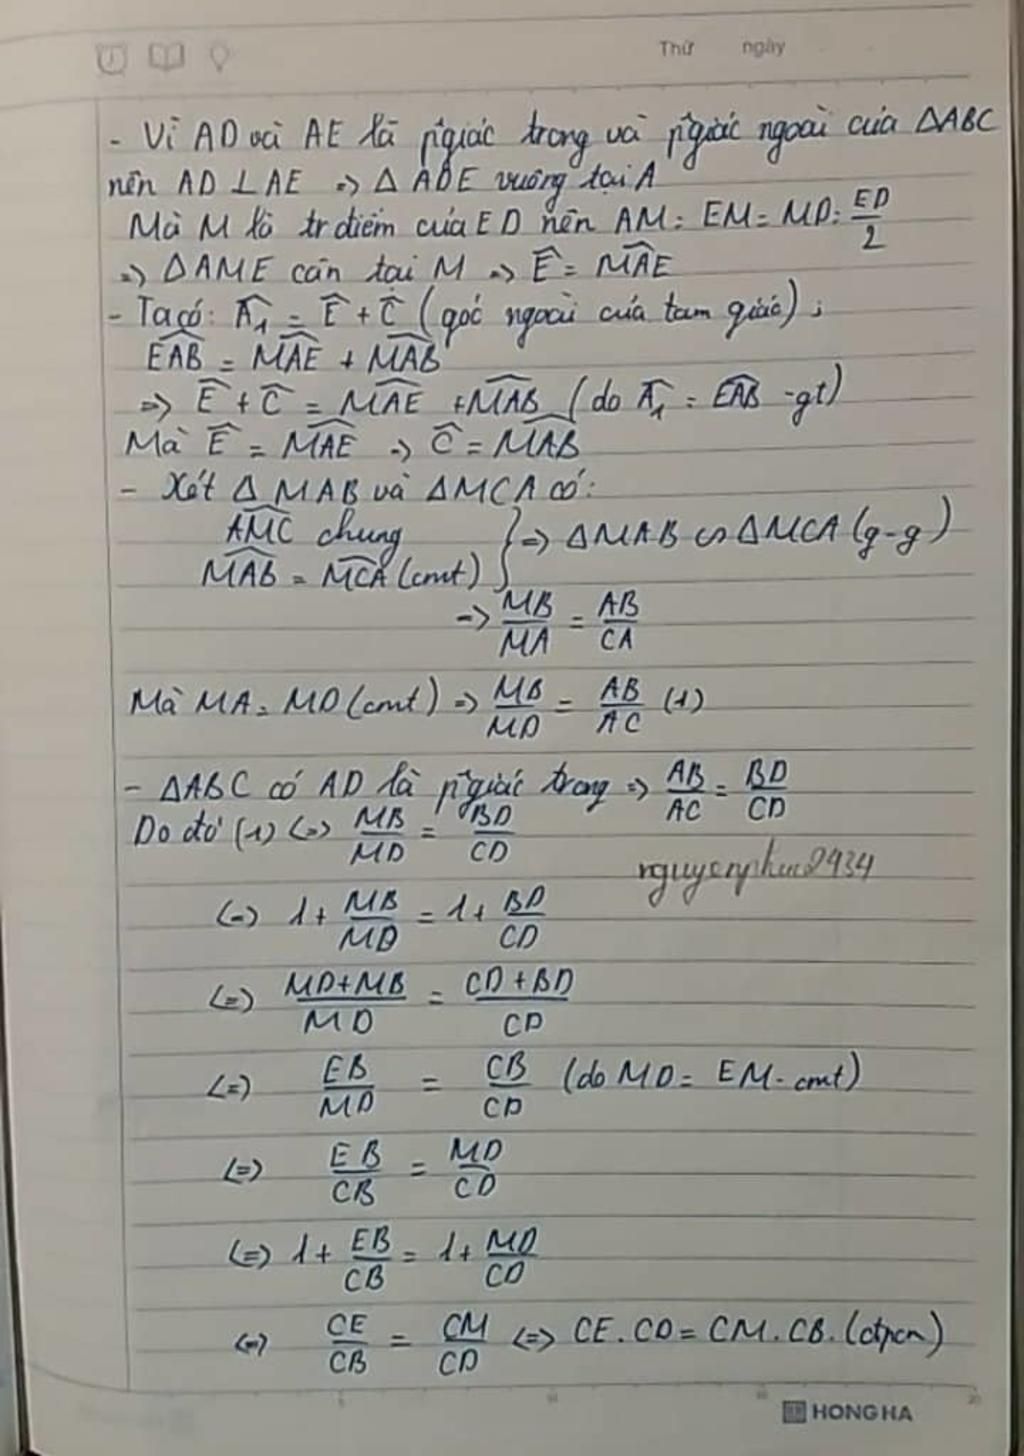 Thứ ngày
- Vì AD và AE là p'giác trong và p'giác ngoài của ΔABC
nên AD ⊥ AE => Δ ADE vuông tại A
Mà M là tr điểm của ED nên AM = EM = MD = ED/2
=> ΔAME cân tại M => Ê = MAE
- Ta có: Â₁ = Ê + Ĉ (góc ngoài của tam giác) ;
EAB = MAE + MAB
=> Ê + Ĉ = MAE + MAB (do Â₁ = EAB - gt)
Mà Ê = MAE => Ĉ = MAB
- Xét Δ MAB và ΔMCA có:
AMC chung
MAB = MCA (cmt) } => ΔMAB ∽ ΔMCA (g-g)
=> MB/MA = AB/CA
Mà MA = MD (cmt) => MB/MD = AB/AC (1)
- ΔABC có AD là p'giác trong => AB/AC = BD/CD
Do đó (1) <=> MB/MD = BD/CD
nguyenphuc2434
<=> 1 + MB/MD = 1 + BD/CD
<=> MD+MB/MD = CD+BD/CD
<=> EB/MD = CB/CD (do MD = EM - cmt)
<=> EB/CB = MD/CD
<=> 1 + EB/CB = 1 + MD/CD
<=> CE/CB = CM/CD <=> CE.CD = CM.CB. (đpcm)
HONG HA